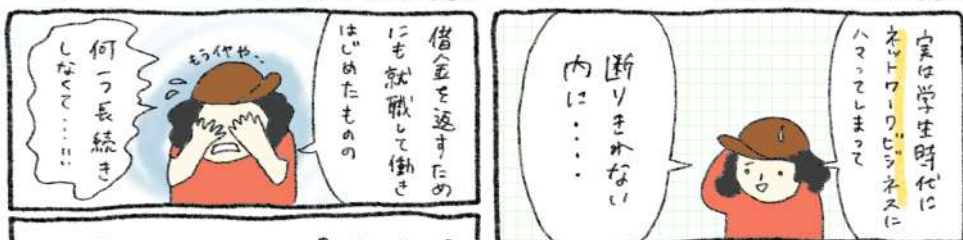 実は学生時代に
ネットワークビジネスに
ハマってしまって
断りきれない
内に・・・・
借金を返すため
にも就職して働き
はじめたものの
もうイヤや・・
何1つ長続き
しなくて・・・・・